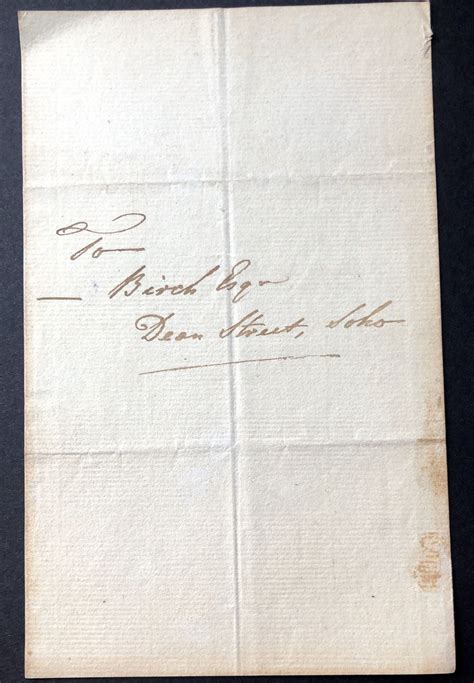 To
— Birch Esqr
Dean Street, Soho